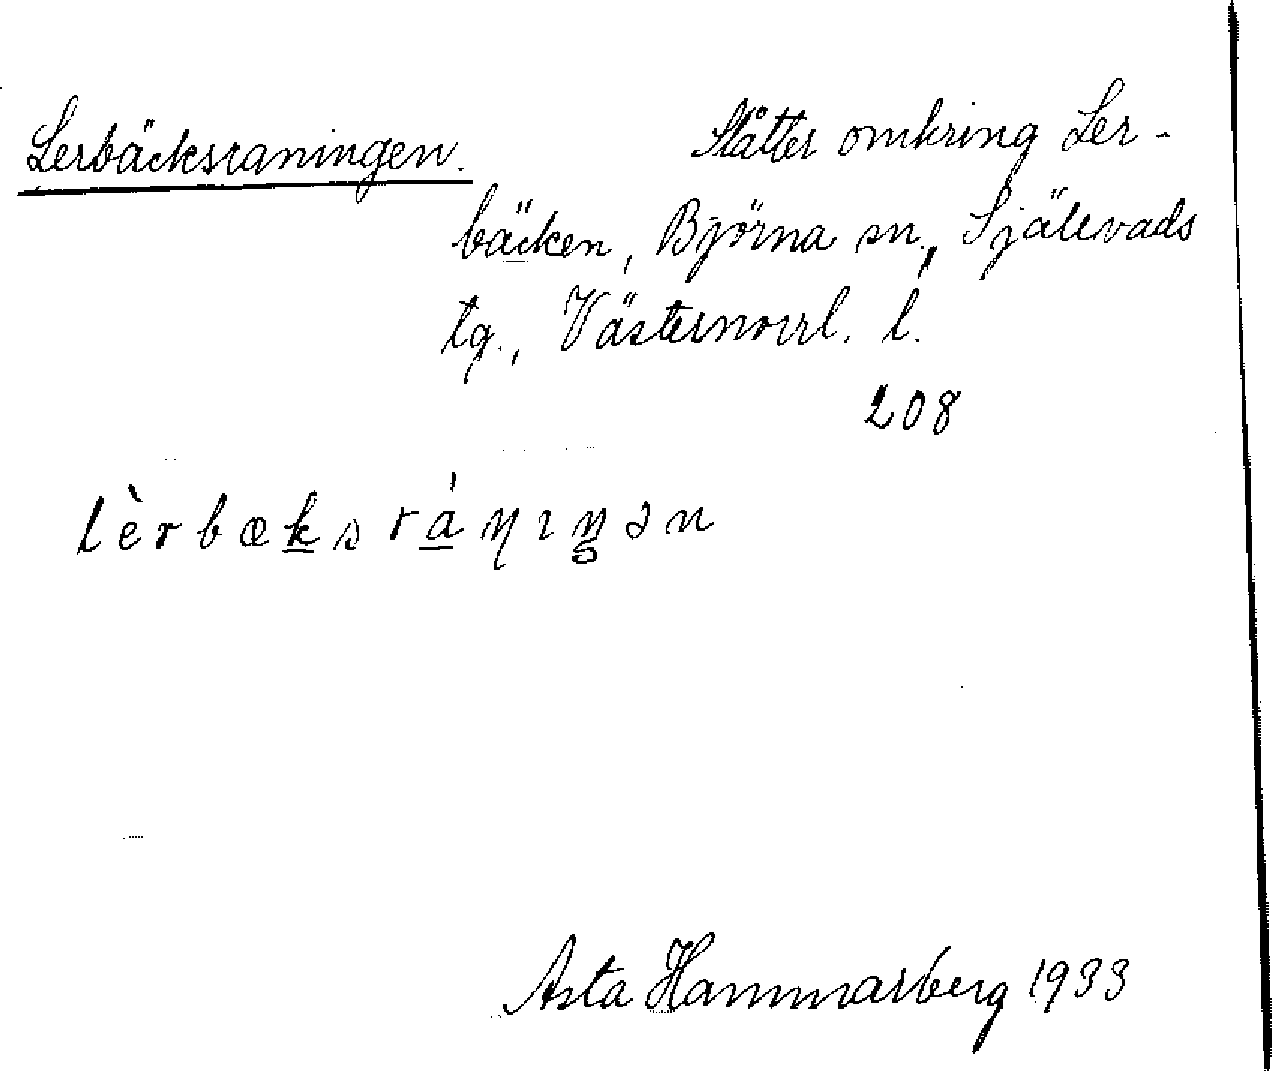 Lerbäcksraningen. Slåtter omkring Ler-
bäcken, Björna sn, Själevads
tg., Västernorrl. l.
208
lèrbæksráŋɪŋən
Asta Hammarberg 1933